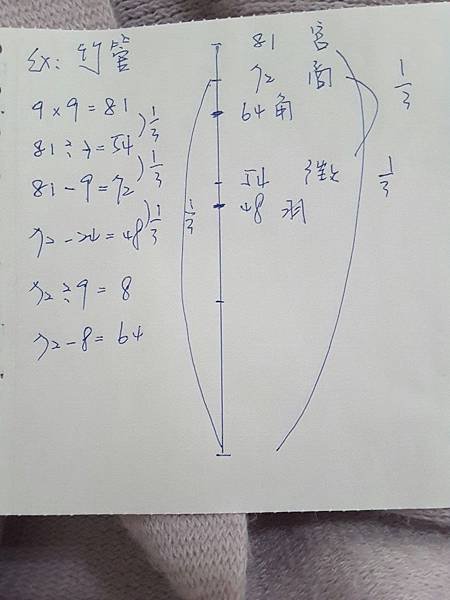 Ex: 竹管
9 × 9 = 81
81 ÷ = 54
81 - 9 = 72
72 - 24 = 48
72 ÷ 9 = 8
72 - 8 = 64
1/3
1/3
1/3
1/3
81 宮
72 商
64 角
54 徵
48 羽
1/3
1/3